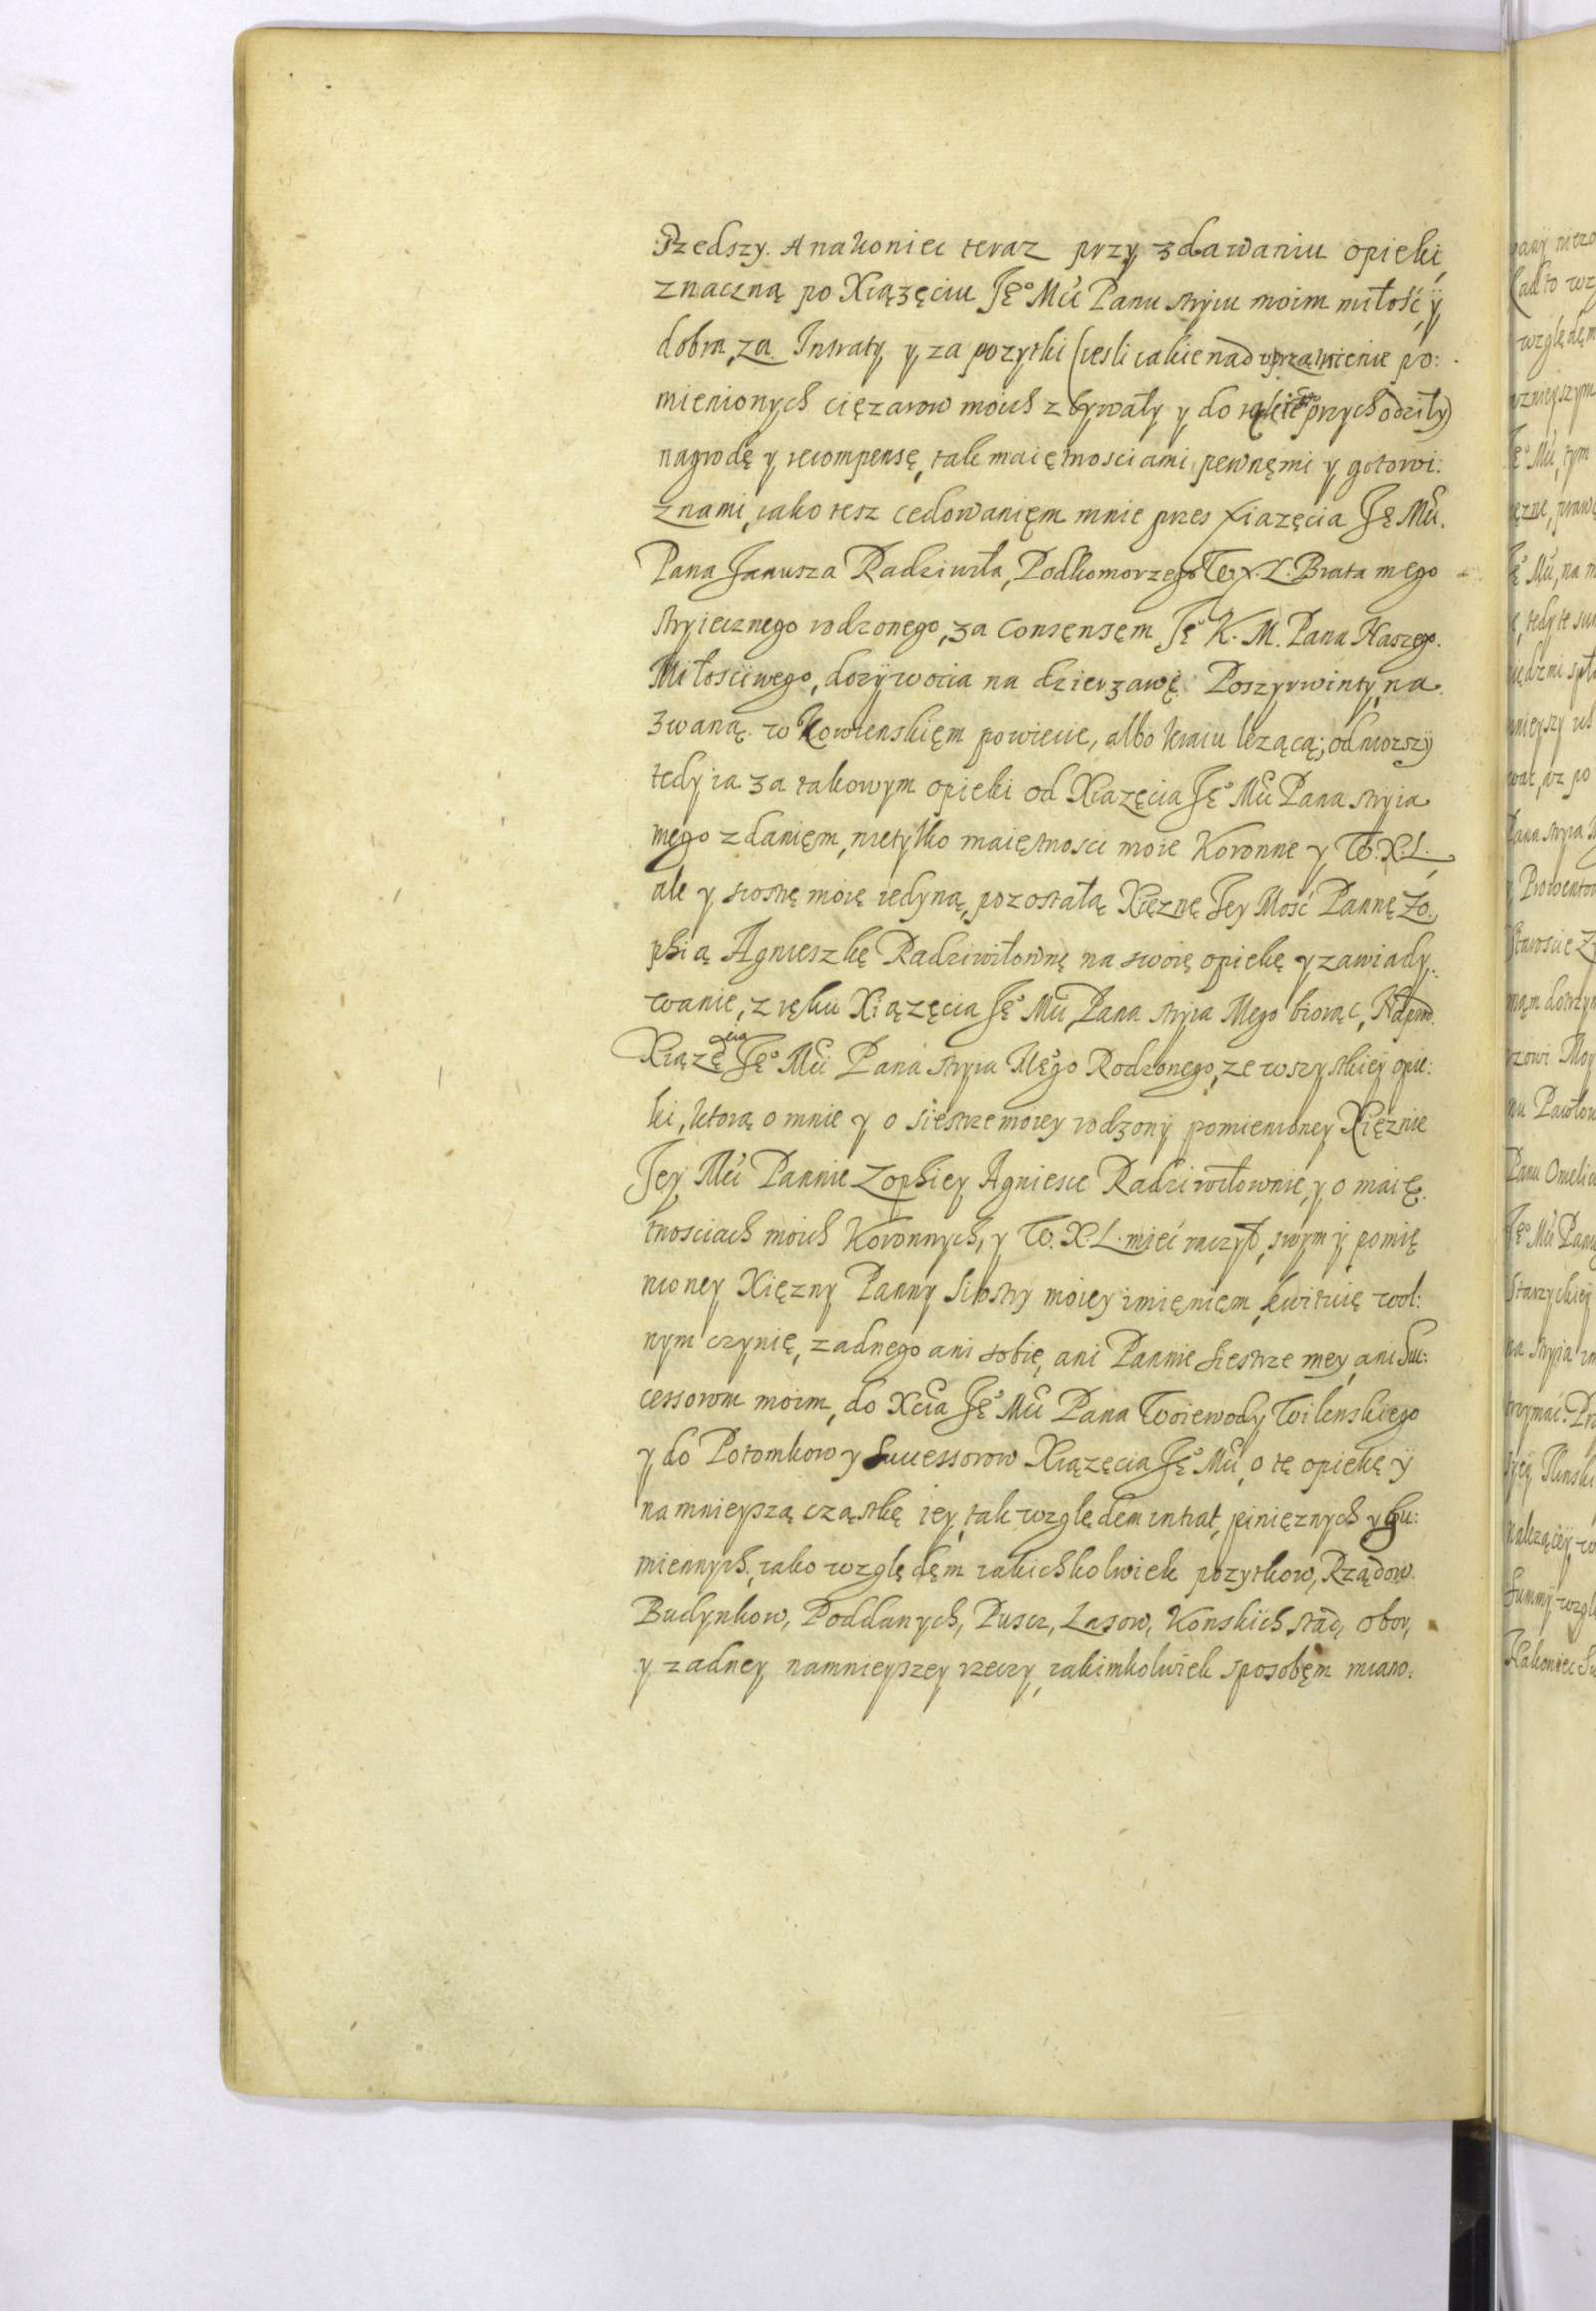 Pzedszy. A nakoniec teraz przy zdawaniu opieki
znaczną po Xiązęciu Jeº Mći Panu stryiu moim miłość, ÿ
dobra, za Intraty y za pozytki (iesli iakie nad uprzątnienie po:
mienionych cięzarow moich zbywały y do przychodziły)
nagrodę y recompensę, tak maiętnosciami pewnęmi y gotowi:
znami, iako tesz cedowanięm mnie przes Xiazęcia Ję Mći.
Pana Janusza Radziwiła, Podkomorzego W. X. L. Brata mego
stryiecznego rodzonego, za Consęnsęm Jęº K. M. Pana Naszego.
Miłosciwego, dozÿwocia na dzierzawę Poszyrwinty na
zwaną w Kowienskięm powiecie, albo kraiu lezącą; odniozszÿ
tedy ia za takowym opieki od Xiazęcia Jęº Mći Pana stryia
męgo zdanięm, nietylko maiętnosci moie Koronne y W. X. L.
ale y siostrę moię iedyną, pozostałą Xięznę Jey Mość Pannę Zo,
phią Agnieszkę Radziwiłownę na swoię opiekę y zawiady,
wanie, z ręku Xiązęcia Jęº Mći Pana stryia Mego biorąc,
Xiązęcia Jęº Mći Pana stryia Męgo Rodzonego, ze wszystkiey opie:
ki, ktorą o mnie y o siestrze moiey rodzonÿ pomienioney Xięznie
Jey Mći Pannie Zophiey Agniesce Radziwiłownie, y o maię,
tnosciach moich Koronnych, y W. X. L. mieć raczył, swym ÿ pomię
nioney Xięzny Panny Siostry moiey imięnięm, kwituię wol:
nym czynię, zadnego ani sobie, ani Pannie Siestrze mey, ani Suc:
cessorom moim, do Xcia Jęº Mći Pana Woiewody Wilenskiego
y do Potomkow y Successorow Xiązęcia Jęº Mći, o tę opiekę ÿ
namnieyszą cząstkę iey, tak względem intrat, pinięznych y gu:
miennych, iako względęm iakichkolwiek pozytkow, Rządow
Budynkow, Poddanych, Puscz, Lasow, Konskich stad, obor,
y zadney namnieyszey rzeczy, iakimkolwiek sposobęm miano: